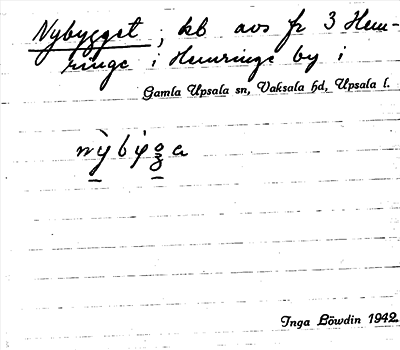 Nybygget, kb avs fr 3 Hem-
ringe i Hemringe by i
Gamla Upsala sn, Vaksala hd, Upsala l.
Inga Löwdin 1942